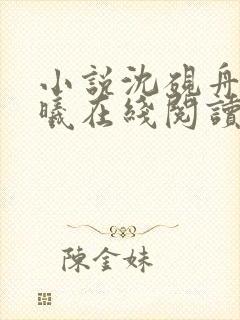 小說沈硯舟
曦在綫閱讀
陳金妹